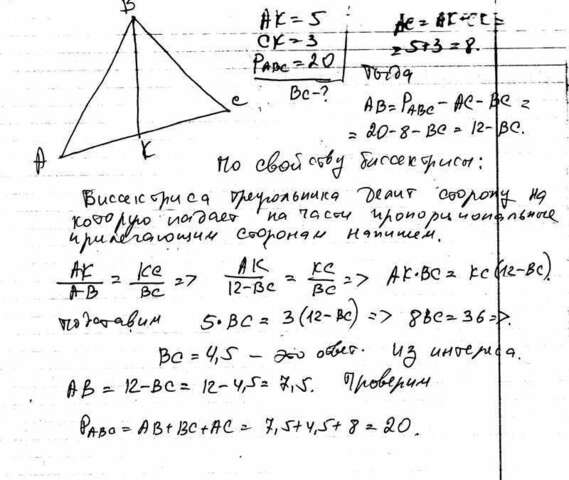 B
A
K
C
AK = 5
CK = 3
P_ABC = 20
BC - ?
AC = AK + CK =
= 5+3 = 8.
Тогда
AB = P_ABC - AC - BC =
= 20-8-BC = 12-BC.
По свойству биссектрисы:
Биссектриса треугольника делит сторону на
которую падает на части пропорциональные
прилегающим сторонам напишем.
AK/AB = KC/BC => AK/12-BC = KC/BC => AK·BC = KC(12-BC).
подставим 5·BC = 3(12-BC) => 8BC = 36 =>.
BC = 4,5 - это ответ. Из интереса.
AB = 12-BC = 12-4,5 = 7,5. Проверим
P_ABC = AB+BC+AC = 7,5+4,5+8 = 20.